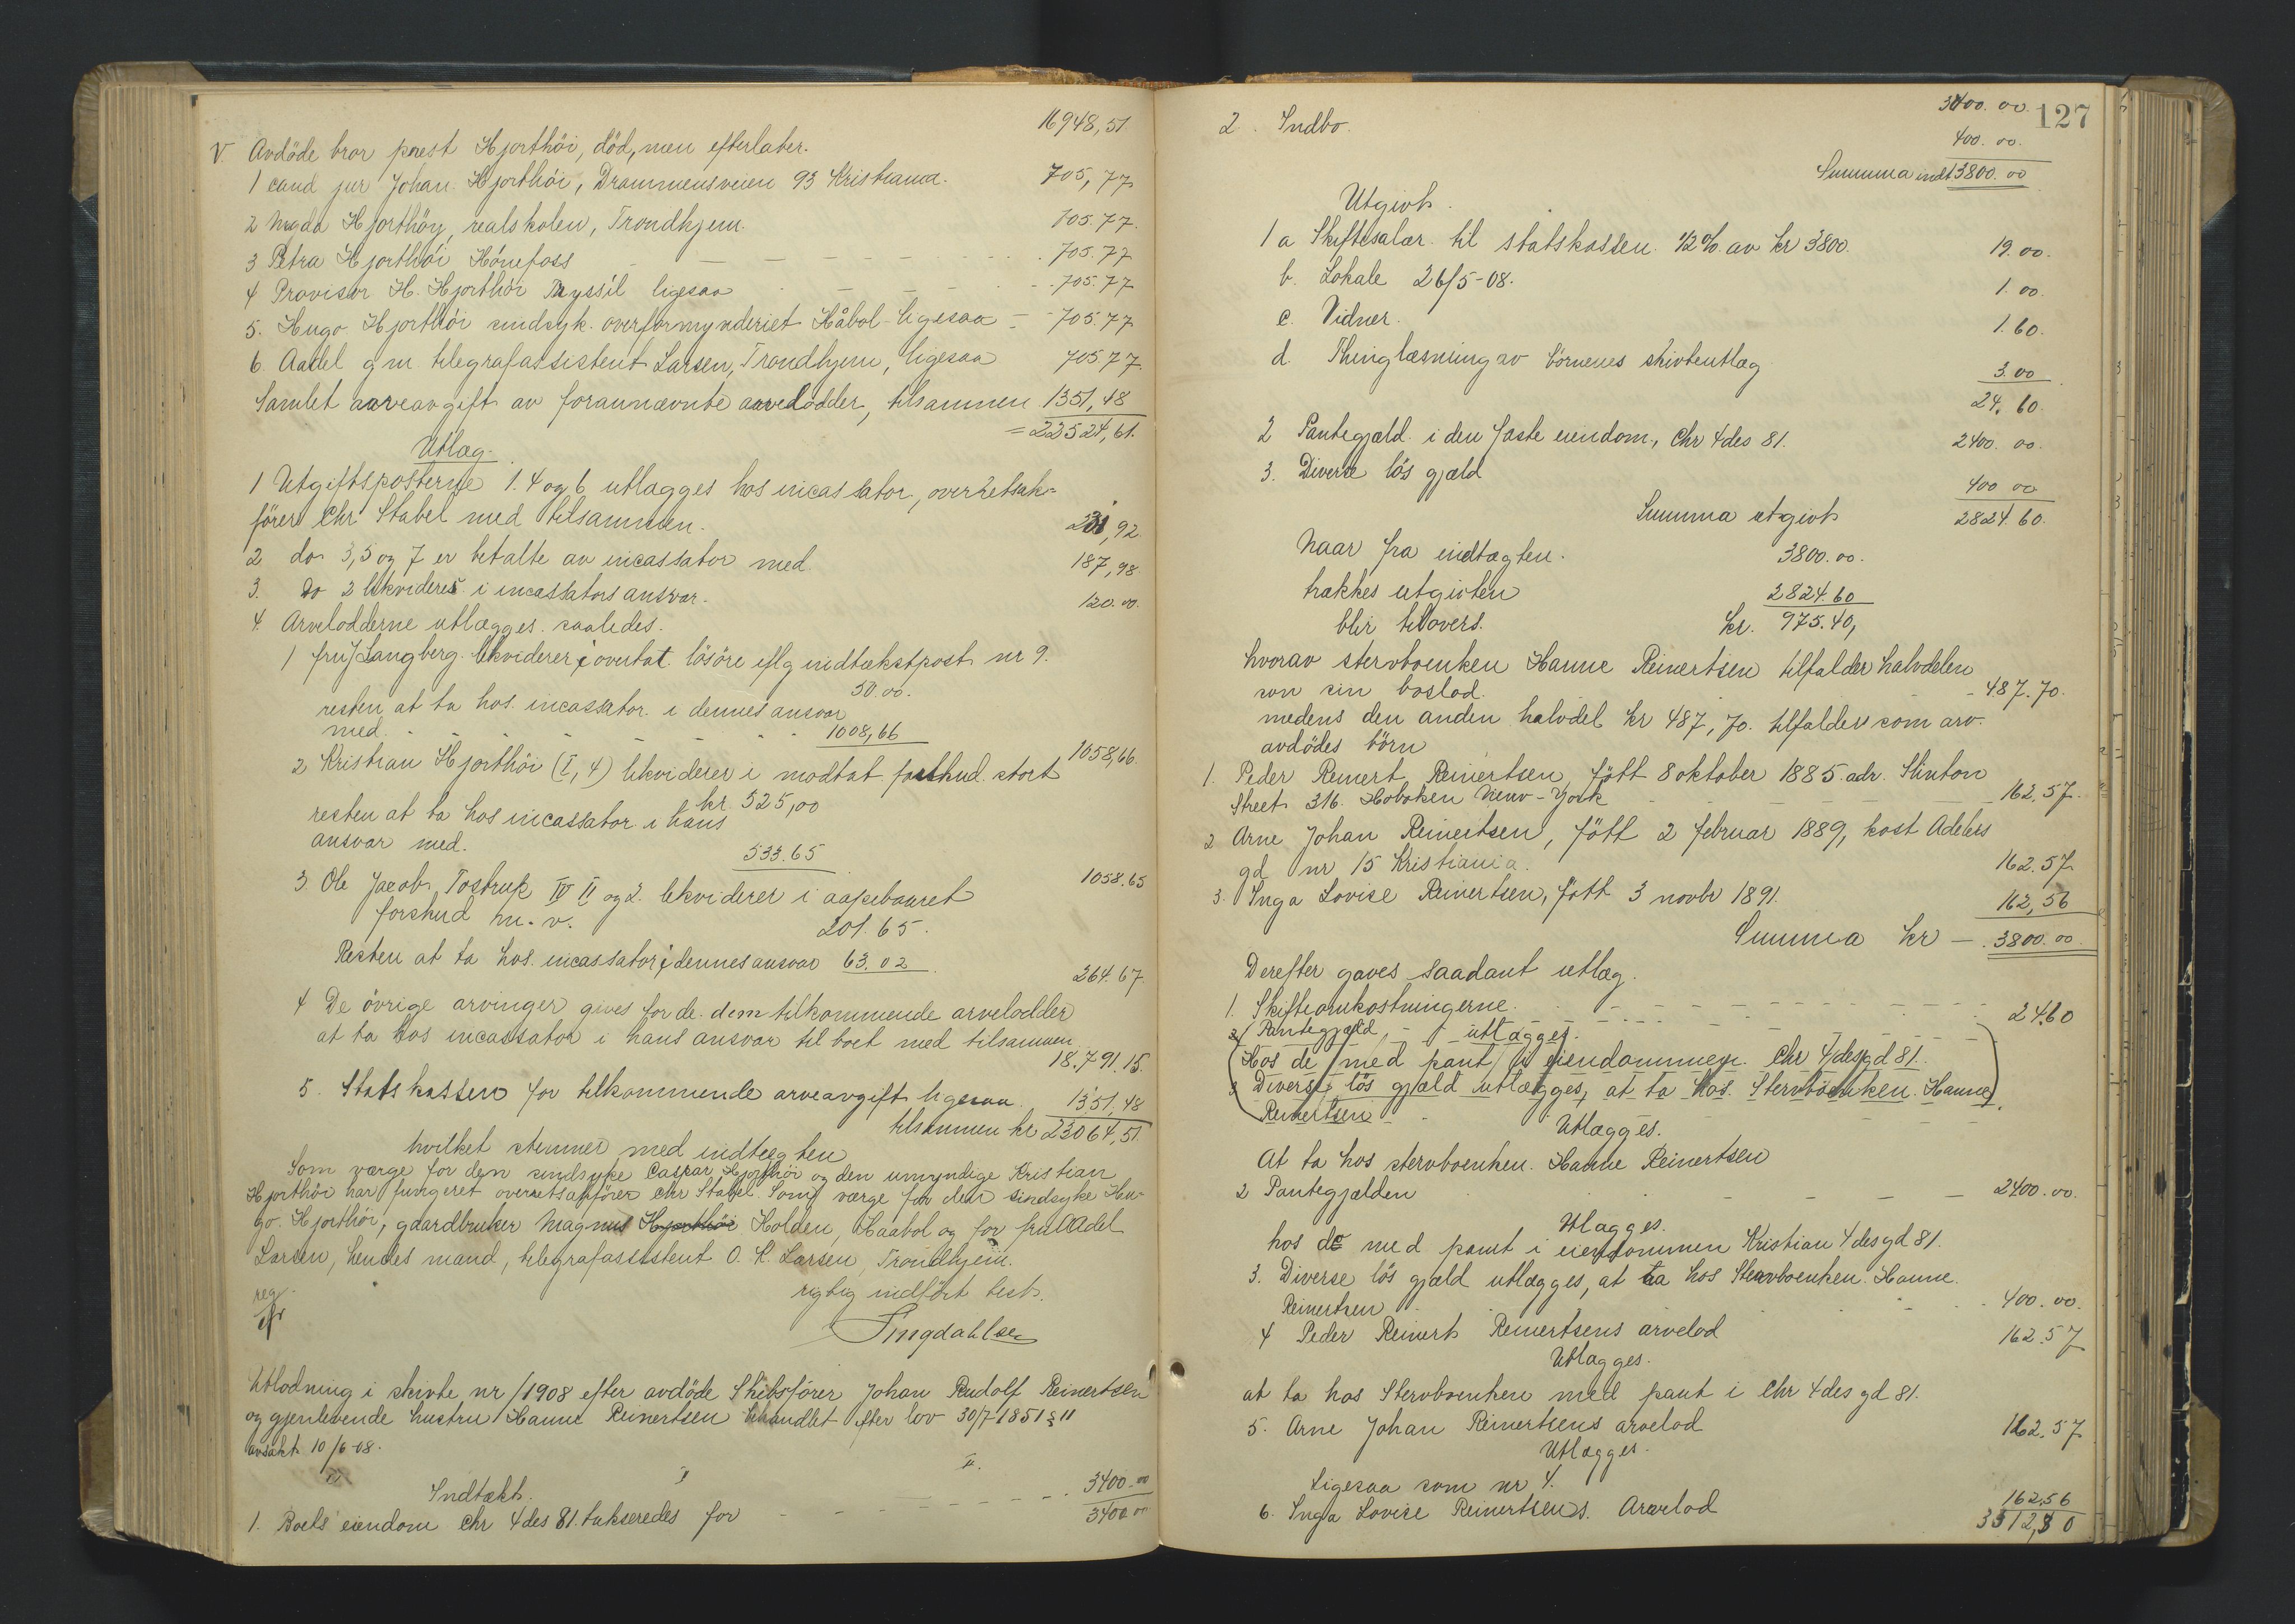 16948,51
V. Avdöde bror prest Hjorthöi, död, men efterlater.
1 cand jur Johan Hjorthöi, Drammensveien 93 Kristiania. 705,77
2 Magda Hjorthöy, realskolen, Trondhjem. 705.77.
3 Petra Hjorthöi Hönefoss - - - - - - 705.77
4 Provisor H. Hjorthöi ligesaa - - - - 705.77
5. Hugo Hjorthöi sindsyk. overformynderiet Håbol - ligesaa - 705.77
6. Aadel gm telegrafassistent Larsen, Trondhjem, ligesaa 705.77.
Samlet aarveavgift av forannævnte aarvelodder, tilsammen 1351,48
= 22524,61.
Utlæg.
1 Utgiftsposterne 1. 4 og 6 utlægges hos incassator, overretssak-
förer Chr Stabel med tilsammen. 231,92
2 do 3,5 og 7 er betalte av incassator med 187,98
3. Do 2 likvideres i incassators ansvar. 120.00.
4. Arvelodderne utlægges saaledes.
1 fru J Langberg likviderer i overtat lösöre iflg indtækstpost nr 9.
50.00.
resten at ta hos incassator i dennes ansvar
med. - - - - - - 1008,66
1058,66.
2 Kristian Hjorthöi (I, 4) likviderer i modtat forskud stort
kr 525,00
resten at ta hos incassator i hans
ansvar med. 533.65
1058.65
3 Ole Jacob Tostrup IV II og 2. likviderer i forskud m. v.
201.65.
Resten at ta hos incassator i dennes ansvar 63.02
264.67.
4 De övrige arvinger gives for de dem tilkommende arvelodder
at ta hos incassator i hans ansvar til boet med tilsammen
18.791.15.
5. Statskassen for tilkommende arveavgift ligesaa 1351,48
tilsammen kr 23064,51
hvilket stemmer med indtægten
Som værge for den sindsyke Caspar Hjorthöi og den umyndige Kristian
Hjorthöi har fungeret overretssakförer Chr Stabel. Som værge for den sindsyke Hu-
go Hjorthöi, gaardbruker Magnus Hjorthöi Holden, Haabol og for fru Aadel
Larsen, hendes mand, telegrafassistent O. K. Larsen, Trondhjem.
reg. rigtig indfört test.
Smgdahlsen
Utlodning i skivte nr /1908 efter avdöde Skibsförer Johan Rudolf Reinertsen
og gjenlevende hustru Hanne Reinertsen behandlet efter lov 30/7-1851 § 11
avsakt 10/6-08.
I II.
Indtækt.
1. Boets eiendom Chr 4des 81. takseredes for - - - - - - 3400.00
3400.00
127
3400.00.
2. Indbo. 400.00.
Summa indt 3800.00
Utgivt.
1 a Skiftesalær til statskassen 1/2 % av kr 3800. 19.00.
b. Lokale 26/5-08. 1.00.
c. Vidner. 1.60.
d. Thinglæsning av börnenes skivteutlæg 3.00
24.60.
2 Pantegjæld i den faste eiendom, Chr 4des 81. 2400.00.
3. Diverse lös gjæld 400 00
Summa utgivt 2824.60.
Naar fra indtægten. 3800.00.
trækkes utgivten 2824.60
blir tilovers. kr. 975.40,
hvorav stervboenken Hanne Reinertsen tilfalder halvdelen
som sin boslod. - 487.70.
medens den anden halvdel kr 487,70. tilfalder som arv.
avdödes börn
1. Peder Reinert Reinertsen, fött 8 oktober 1885. adr. Slinton
Street 316. Hoboken New-York - - - - - 162.57.
2 Arne Johan Reinertsen, fött 2 februar 1889, kost Adelers
gd nr 15 Kristiania. 162.57.
3. Inga Lovise Reinertsen, fött 3 novbr 1891. 162,56
Summa kr - 3800.00.
Derefter gaves saadant utlæg.
1. Skifteomkostningerne. - - - - - - 24.60
2 Pantegjæld - - utlægges.
Hos de med pant i eiendommen Chr 4des gd 81.
3 Diverse lös gjæld utlægges, at ta hos Stervboenken Hanne
Reinertsen
Utlægges.
At ta hos stervboenken. Hanne Reinertsen
2 Pantegjælden - - - 2400.00.
Utlægges.
hos de med pant i eiendommen Kristian 4des gd 81.
3. Diverse lös gjæld utlægges, at ta hos Stervboenken Hanne
Reinertsen 400.00.
4 Peder Reinert Reinertsens arvelod 162.57
Utlægges.
at ta hos Stervboenken med pant i Chr 4des gd 81.
5. Arne Johan Reinertsens arvelod 162.57
Utlægges.
Ligesaa som nr 4.
6. Inga Lovise Reinertsens. Arvelod 162.56
3312,30